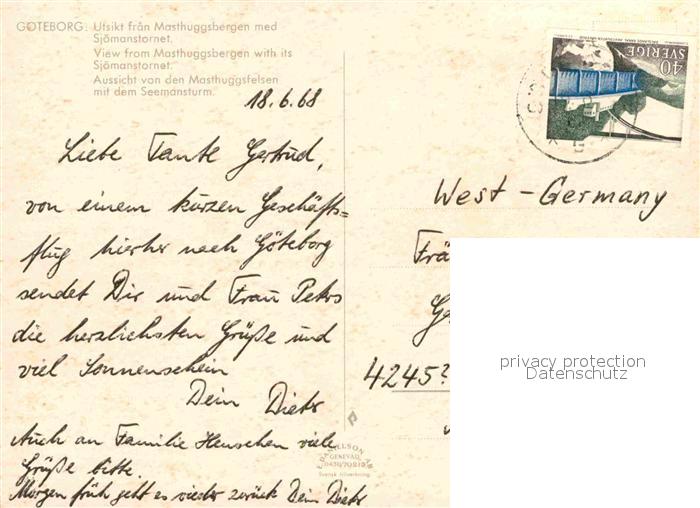 GÖTEBORG. Utsikt från Masthuggsbergen med
Sjömanstornet.
View from Masthuggsbergen with its
Sjömanstornet.
Aussicht von den Masthuggsfelsen
mit dem Seemansturm.
18.6.68
Liebe Tante Gertrud,
von einem kurzen Geschäfts=
flug hierher nach Göteborg
sendet Dir und Frau Peters
die herzlichsten Grüße und
viel Sonnenschein
Dein Dieter
Auch an Familie Henschen viele
Grüße bitte.
Morgen früh geht es wieder zurück Dein Dieter
SVERIGE
40
West-Germany
Frä
Ge
4245?
privacy protection
Datenschutz
E. DANIELSON AB
GENEVAD
0430/70210
Svensk tillverkning